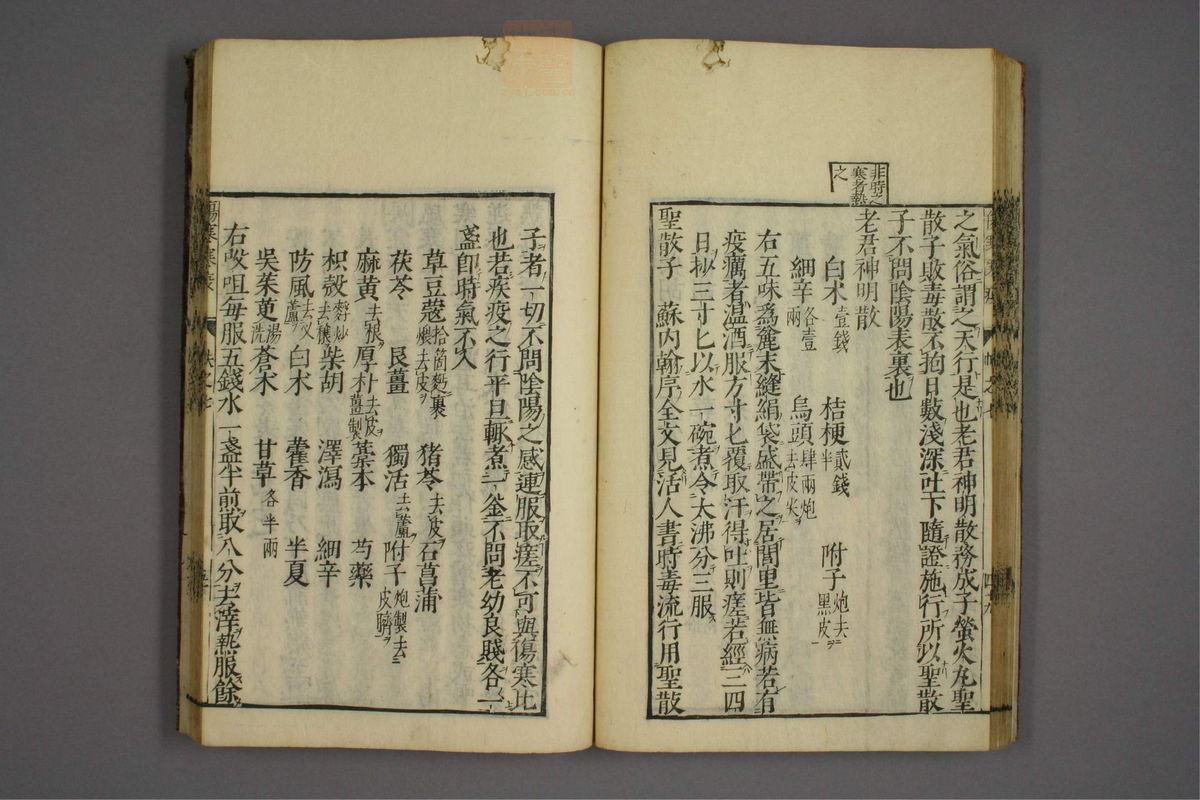 非時之
寒者熱
之
之氣俗謂之天行是也老君神明散務成子螢火丸聖
散子敗毒散不拘日數淺深吐下隨證施行所以聖散
子不問陰陽表裏也
老君神明散
白朮壹錢 桔梗貳錢半 附子炮去黑皮
細辛各壹兩 烏頭肆兩炮去皮尖
右五味爲麄末縫絹袋盛帶之居閭里皆無病若有
疫癘者温酒服方寸匕覆取汗得吐則瘥若經三四
日抄三寸匕以水一碗煮令大沸分三服
聖散子 蘇内翰序全文見活人書時毒流行用聖散
子者一切不問陰陽之感連服取瘥不可與傷寒比
也若疾疫之行平旦輙煮一釜不問老幼良賤各一
盞卽時氣不入
草豆蔻拾箇麪裹煨去皮 猪苓去皮 石菖蒲
茯苓 良薑 獨活去蘆 附子炮製去皮臍
麻黄去根 厚朴去皮薑製 藁本 芍藥
枳殼麩炒去穰 柴胡 澤瀉 細辛
防風去蘆 白朮 藿香 半夏
吳茱萸湯洗 蒼朮 甘草各半兩
右㕮咀每服五錢水一盞半煎取八分去滓熱服餘